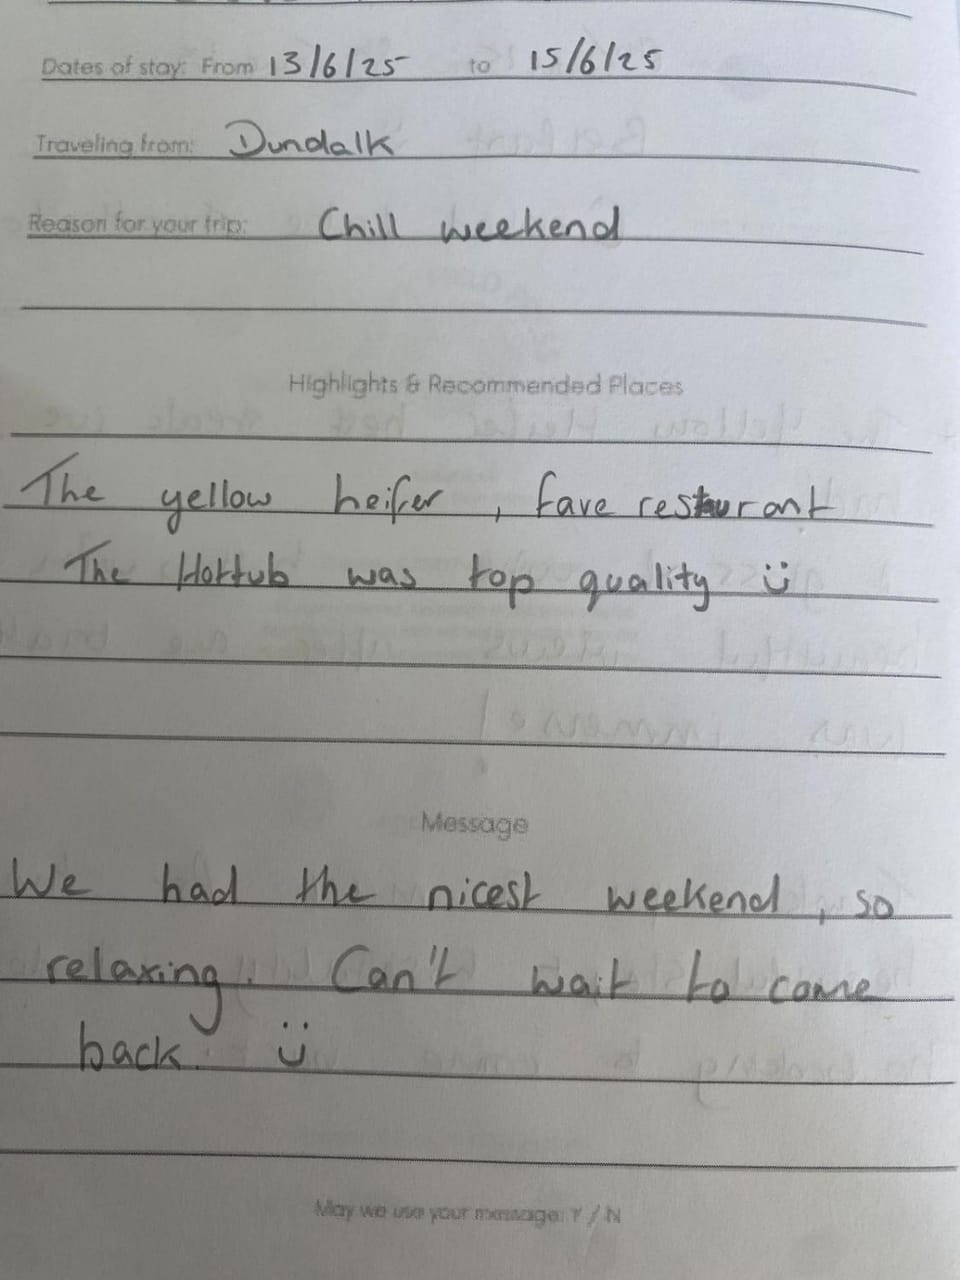 Dates of stay: From 13/6/25 to 15/6/25
Traveling from: Dundalk
Reason for your trip: Chill weekend
Highlights & Recommended Places
The yellow heifer, fave restaurant
The Hottub was top quality ü
Message
We had the nicest weekend, so
relaxing. Can't wait to come
back. ü
May we use your message: Y / N